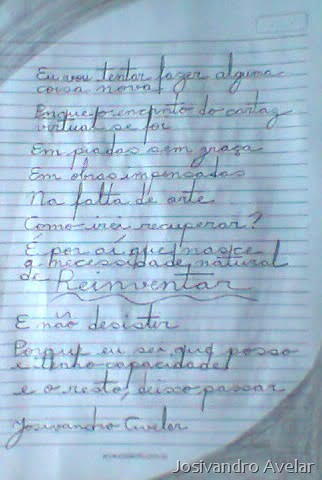 Eu vou tentar fazer alguma
coisa nova
Enquanto do cartaz
virtual se foi
Em piadas sem graça
Em obras impensadas
Na falta de arte
Como irei recuperar?
E por aí que nasce
a necessidade natural
de Reinventar
E não desistir
Porque eu sei que posso
e tenho capacidade
e o resto, deixo passar
Josivandro Avelar
Josivandro Avelar